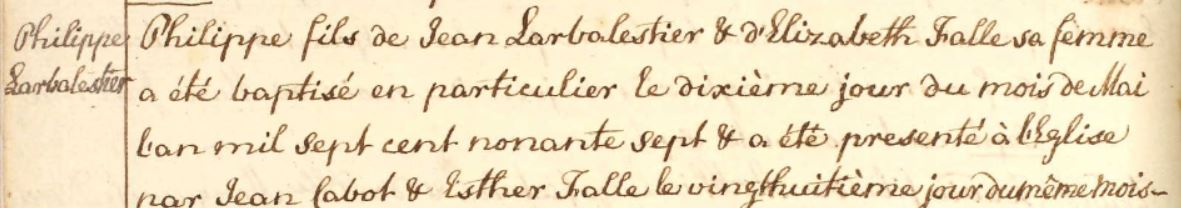 Philippe
Larbalestier
Philippe fils de Jean Larbalestier & d'Elizabeth Falle sa femme
a été baptisé en particulier le dixième jour du mois de Mai
l'an mil sept cent nonante sept & a été presenté à l'Eglise
par Jean Cabot & Esther Falle le vingthuitième jour du même mois